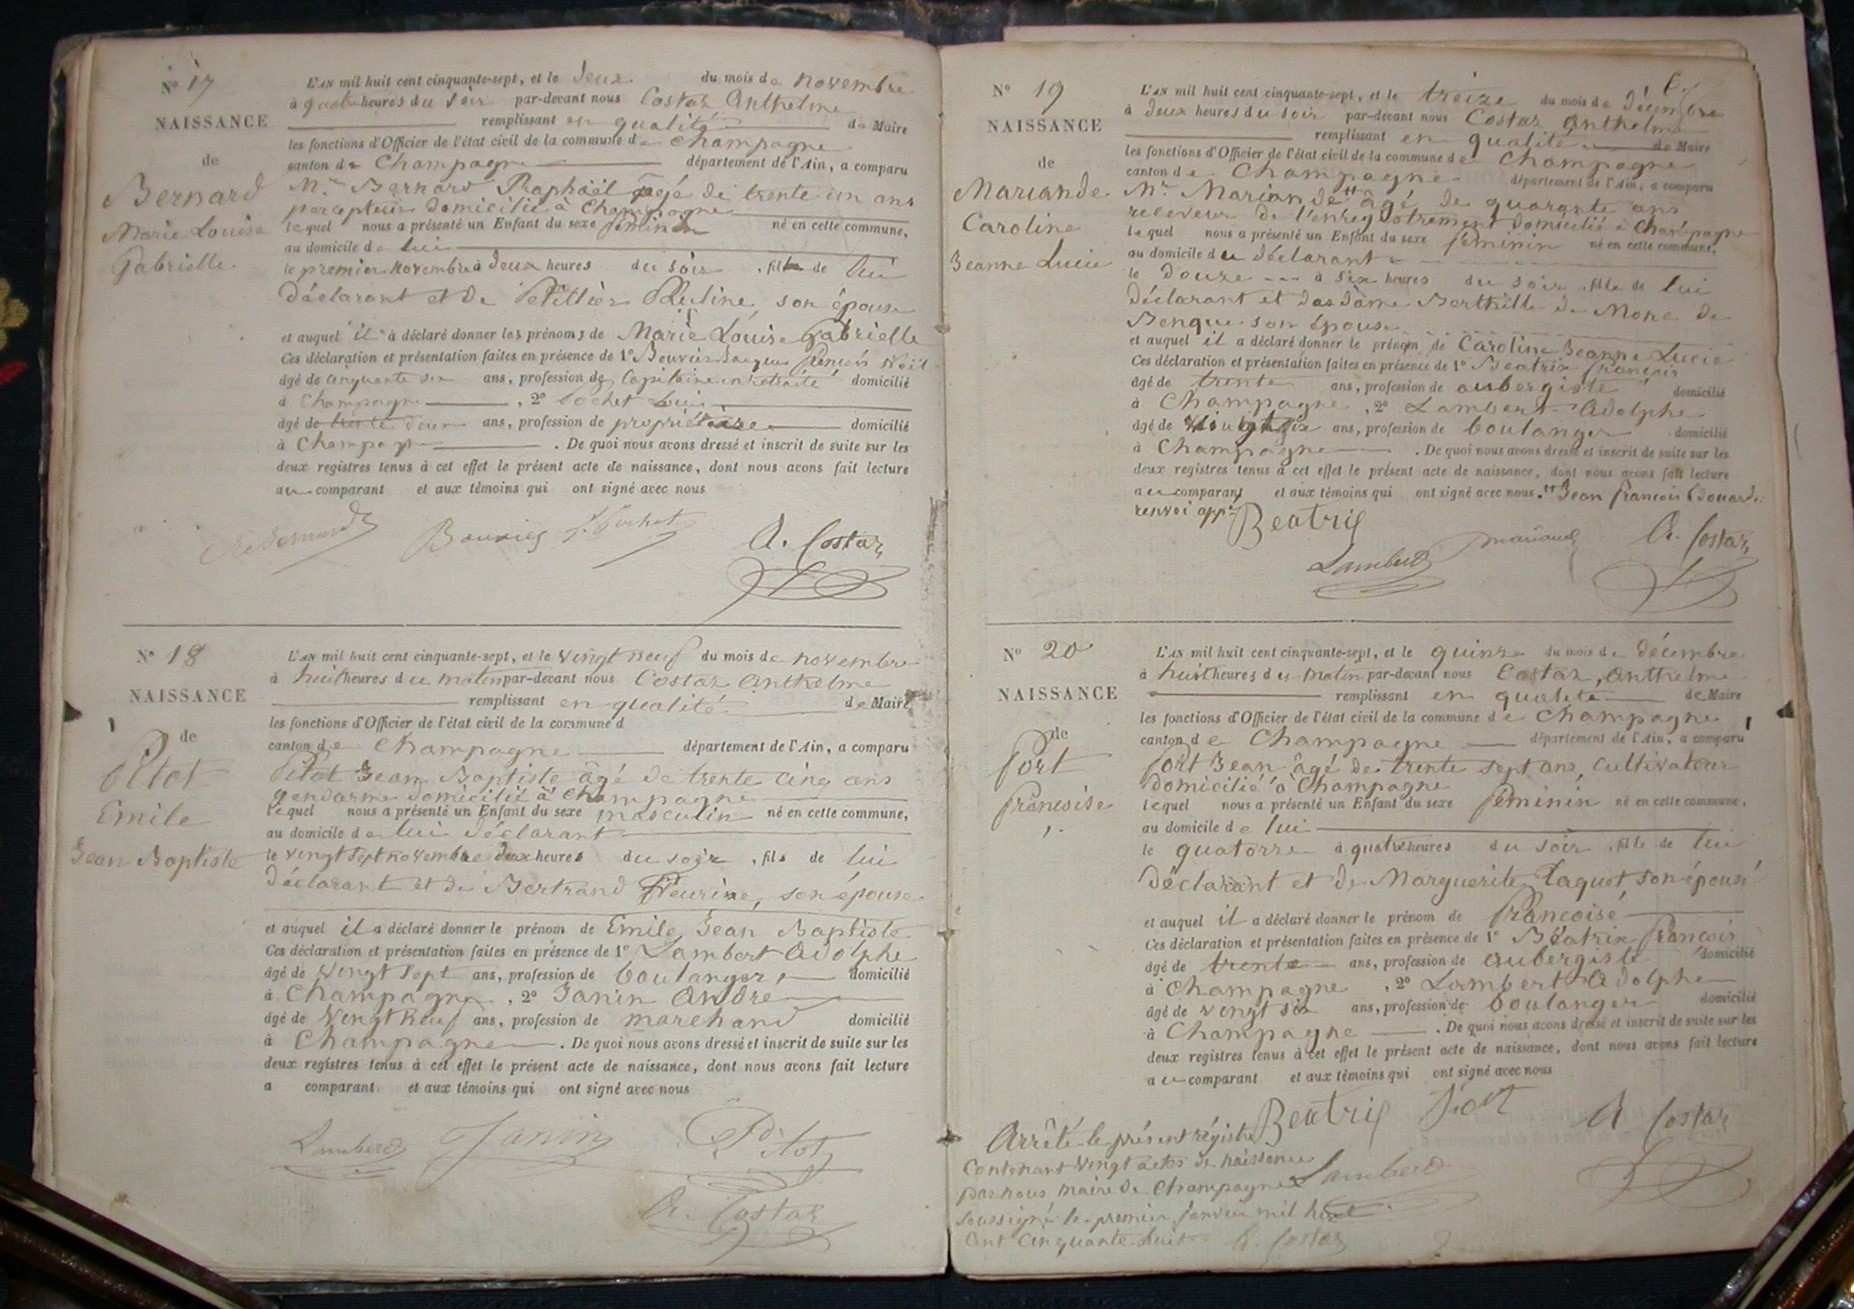 N° 17
NAISSANCE
de
Bernard
Marie Louise
Gabrielle
L'AN mil huit cent cinquante-sept, et le deux du mois de novembre
à quatre heures du soir par-devant nous Costaz Anthelme
remplissant en qualité de Maire
les fonctions d'Officier de l'état civil de la commune de Champagne
canton de Champagne département de l'Ain, a comparu
Mr Bernard Raphaël âgé de trente un ans
percepteur domicilié à Champagne
lequel nous a présenté un Enfant du sexe féminin né en cette commune,
au domicile de lui
le premier novembre à deux heures du soir, fille de lui
déclarant et de Pauline, son épouse
et auquel il a déclaré donner les prénoms de Marie Louise Gabrielle
Ces déclaration et présentation faites en présence de 1° Bouvier François Noël
âgé de cinquante six ans, profession de Capitaine en retraite domicilié
à Champagne, 2° Louis
âgé de trente deux ans, profession de propriétaire domicilié
à Champagne. De quoi nous avons dressé et inscrit de suite sur les
deux registres tenus à cet effet le présent acte de naissance, dont nous avons fait lecture
au comparant et aux témoins qui ont signé avec nous
Bernard Bouvier A. Costaz
N° 18
NAISSANCE
de
Pitot
Emile
Jean Baptiste
L'AN mil huit cent cinquante-sept, et le vingt neuf du mois de novembre
à huit heures du matin par-devant nous Costaz Anthelme
remplissant en qualité de Maire
les fonctions d'Officier de l'état civil de la commune d
canton de Champagne département de l'Ain, a comparu
Pitot Jean Baptiste âgé de trente cinq ans
gendarme domicilié à Champagne
lequel nous a présenté un Enfant du sexe masculin né en cette commune,
au domicile de lui déclarant
le vingt sept novembre deux heures du soir, fils de lui
déclarant et de Bertrand Fleurine, son épouse
et auquel il a déclaré donner le prénom de Emile Jean Baptiste
Ces déclaration et présentation faites en présence de 1° Lambert Adolphe
âgé de vingt sept ans, profession de boulanger, domicilié
à Champagne, 2° Janin André
âgé de vingt neuf ans, profession de marchand domicilié
à Champagne. De quoi nous avons dressé et inscrit de suite sur les
deux registres tenus à cet effet le présent acte de naissance, dont nous avons fait lecture
a comparant et aux témoins qui ont signé avec nous
Lambert Janin Pitot
A. Costaz
N° 19
NAISSANCE
de
Mariande
Caroline
Jeanne Lucie
L'AN mil huit cent cinquante-sept, et le treize du mois de décembre
à deux heures du soir par-devant nous Costaz Anthelme
remplissant en qualité de Maire
les fonctions d'Officier de l'état civil de la commune de Champagne
canton de Champagne département de l'Ain, a comparu
Mr Mariande âgé de quarante ans
receveur de l'enregistrement domicilié à Champagne
lequel nous a présenté un Enfant du sexe féminin né en cette commune,
au domicile du déclarant
le douze à six heures du soir, fille de lui
déclarant et de dame Berthille de Mone de
Benque son épouse
et auquel il a déclaré donner le prénom de Caroline Jeanne Lucie
Ces déclaration et présentation faites en présence de 1° Béatrix François
âgé de trente ans, profession de aubergiste domicilié
à Champagne, 2° Lambert Adolphe
âgé de vingt six ans, profession de boulanger domicilié
à Champagne. De quoi nous avons dressé et inscrit de suite sur les
deux registres tenus à cet effet le présent acte de naissance, dont nous avons fait lecture
au comparant et aux témoins qui ont signé avec nous. Jean François Edouard.
renvoi appé
Beatrix Lambert Mariande A. Costaz
N° 20
NAISSANCE
de
Fort
Françoise
L'AN mil huit cent cinquante-sept, et le quinze du mois de décembre
à huit heures du matin par-devant nous Costaz, Anthelme
remplissant en qualité de Maire
les fonctions d'Officier de l'état civil de la commune de Champagne
canton de Champagne département de l'Ain, a comparu
Fort Jean âgé de trente sept ans, cultivateur
domicilié à Champagne
lequel nous a présenté un Enfant du sexe féminin né en cette commune,
au domicile de lui
le quatorze à quatre heures du soir, fille de lui
déclarant et de Marguerite Taquet, son épouse
et auquel il a déclaré donner le prénom de Françoise
Ces déclaration et présentation faites en présence de 1° Béatrix François
âgé de trente ans, profession de aubergiste domicilié
à Champagne, 2° Lambert Adolphe
âgé de vingt six ans, profession de boulanger domicilié
à Champagne. De quoi nous avons dressé et inscrit de suite sur les
deux registres tenus à cet effet le présent acte de naissance, dont nous avons fait lecture
au comparant et aux témoins qui ont signé avec nous
Beatrix Fort A Costaz
Lambert
Arrêté le présent régistre
contenant vingt actes de naissance
par nous maire de Champagne
soussigné le premier janvier mil huit
cent cinquante huit A. Costaz